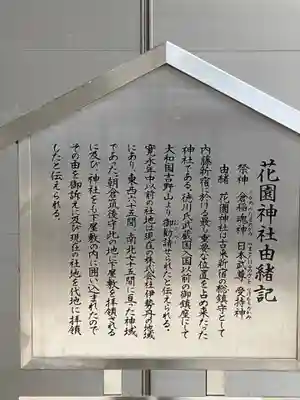 花園神社由緒記
祭神 倉稲魂神 日本武尊 受持神
由緒 花園神社は古来新宿の総鎮守として
内藤新宿に於ける最も重要な位置を占め来たった
神社である。徳川氏武蔵国入国以前の御鎮座にして
大和国吉野山より御勧請せられたと伝えられる。
寛永年中以前の社地は現在の株式会社伊勢丹の地域
にあり、東西六十五間、南北七十五間に亘った神域
であった。朝倉筑後守此の地に下屋敷を拝領される
に及び、神社をも下屋敷の内に囲い込まれたので
その由を御訴え及び現在の社地を代地に拝領
したと伝えられる。